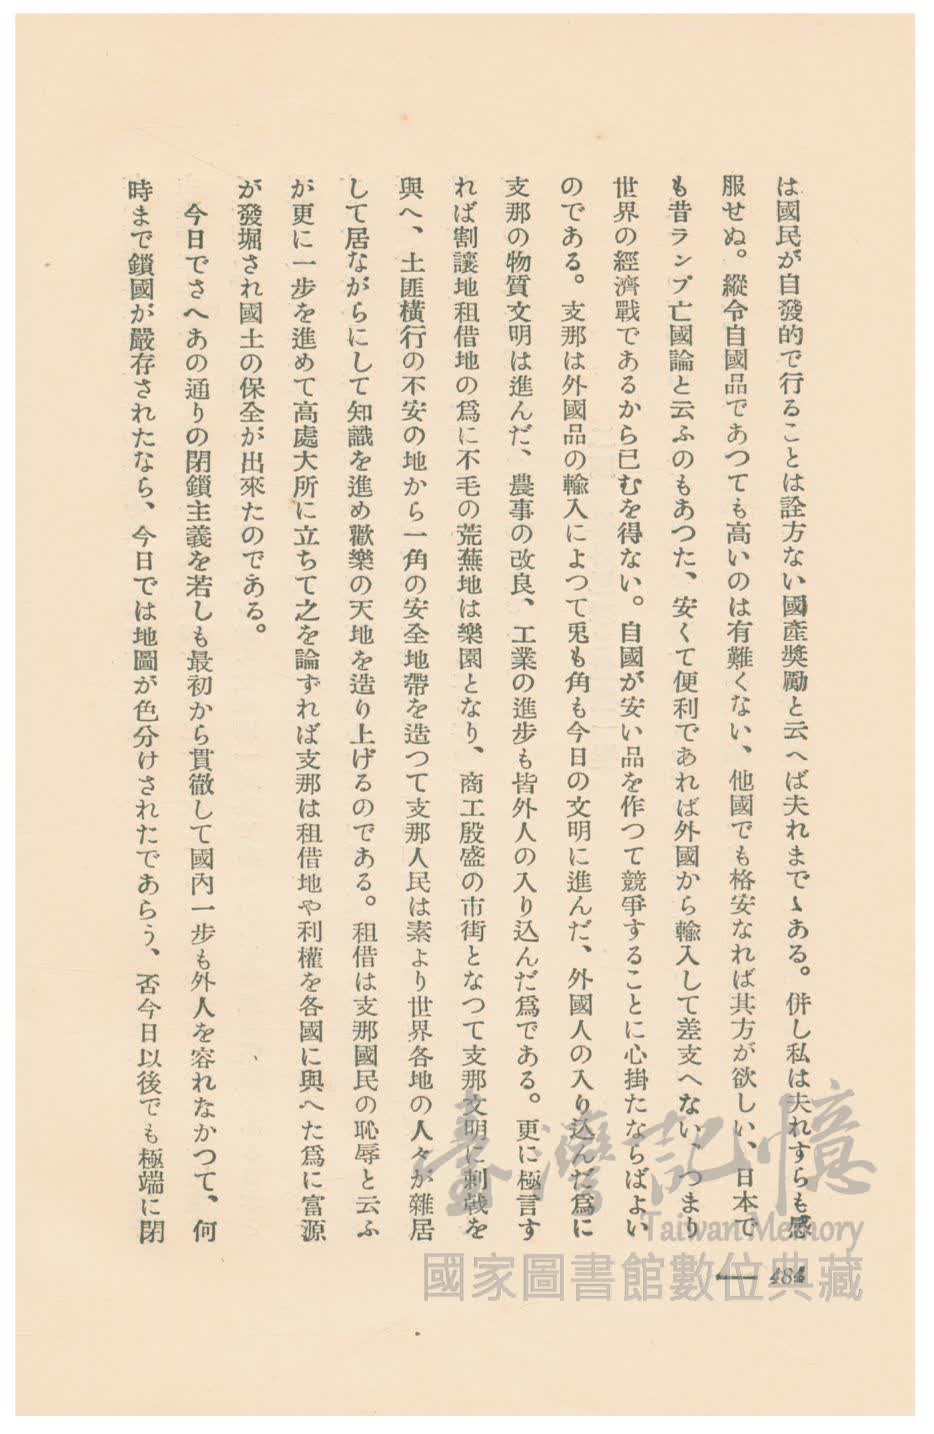 は國民が自發的で行ることは詮方ない國產獎勵と云へば夫れまでゝある。併し私は夫れすらも感
服せぬ。縱令自國品であつても高いのは有難くない、他國でも格安なれば其方が欲しい、日本で
も昔ランプ亡國論と云ふのもあつた、安くて便利であれば外國から輸入して差支へない、つまり
世界の經濟戰であるから已むを得ない。自國が安い品を作つて競爭することに心掛たならばよい
のである。支那は外國品の輸入によつて兎も角も今日の文明に進んだ、外國人の入り込んだ爲に
支那の物質文明は進んだ、農事の改良、工業の進步も皆外人の入り込んだ爲である。更に極言す
れば割讓地租借地の爲に不毛の荒蕪地は樂園となり、商工殷盛の市街となつて支那文明に刺戟を
與へ、土匪橫行の不安の地から一角の安全地帶を造つて支那人民は素より世界各地の人々が雜居
して居ながらにして知識を進め歡樂の天地を造り上げるのである。租借は支那國民の恥辱と云ふ
が更に一步を進めて高處大所に立ちて之を論ずれば支那は租借地や利權を各國に與へた爲に富源
が發掘され國土の保全が出來たのである。
今日でさへあの通りの閉鎖主義を若しも最初から貫徹して國內一步も外人を容れなかつて、何
時まで鎖國が嚴存されたなら、今日では地圖が色分けされたであらう、否今日以後でも極端に閉
— 484
臺灣記憶
Taiwan Memory
國家圖書館數位典藏